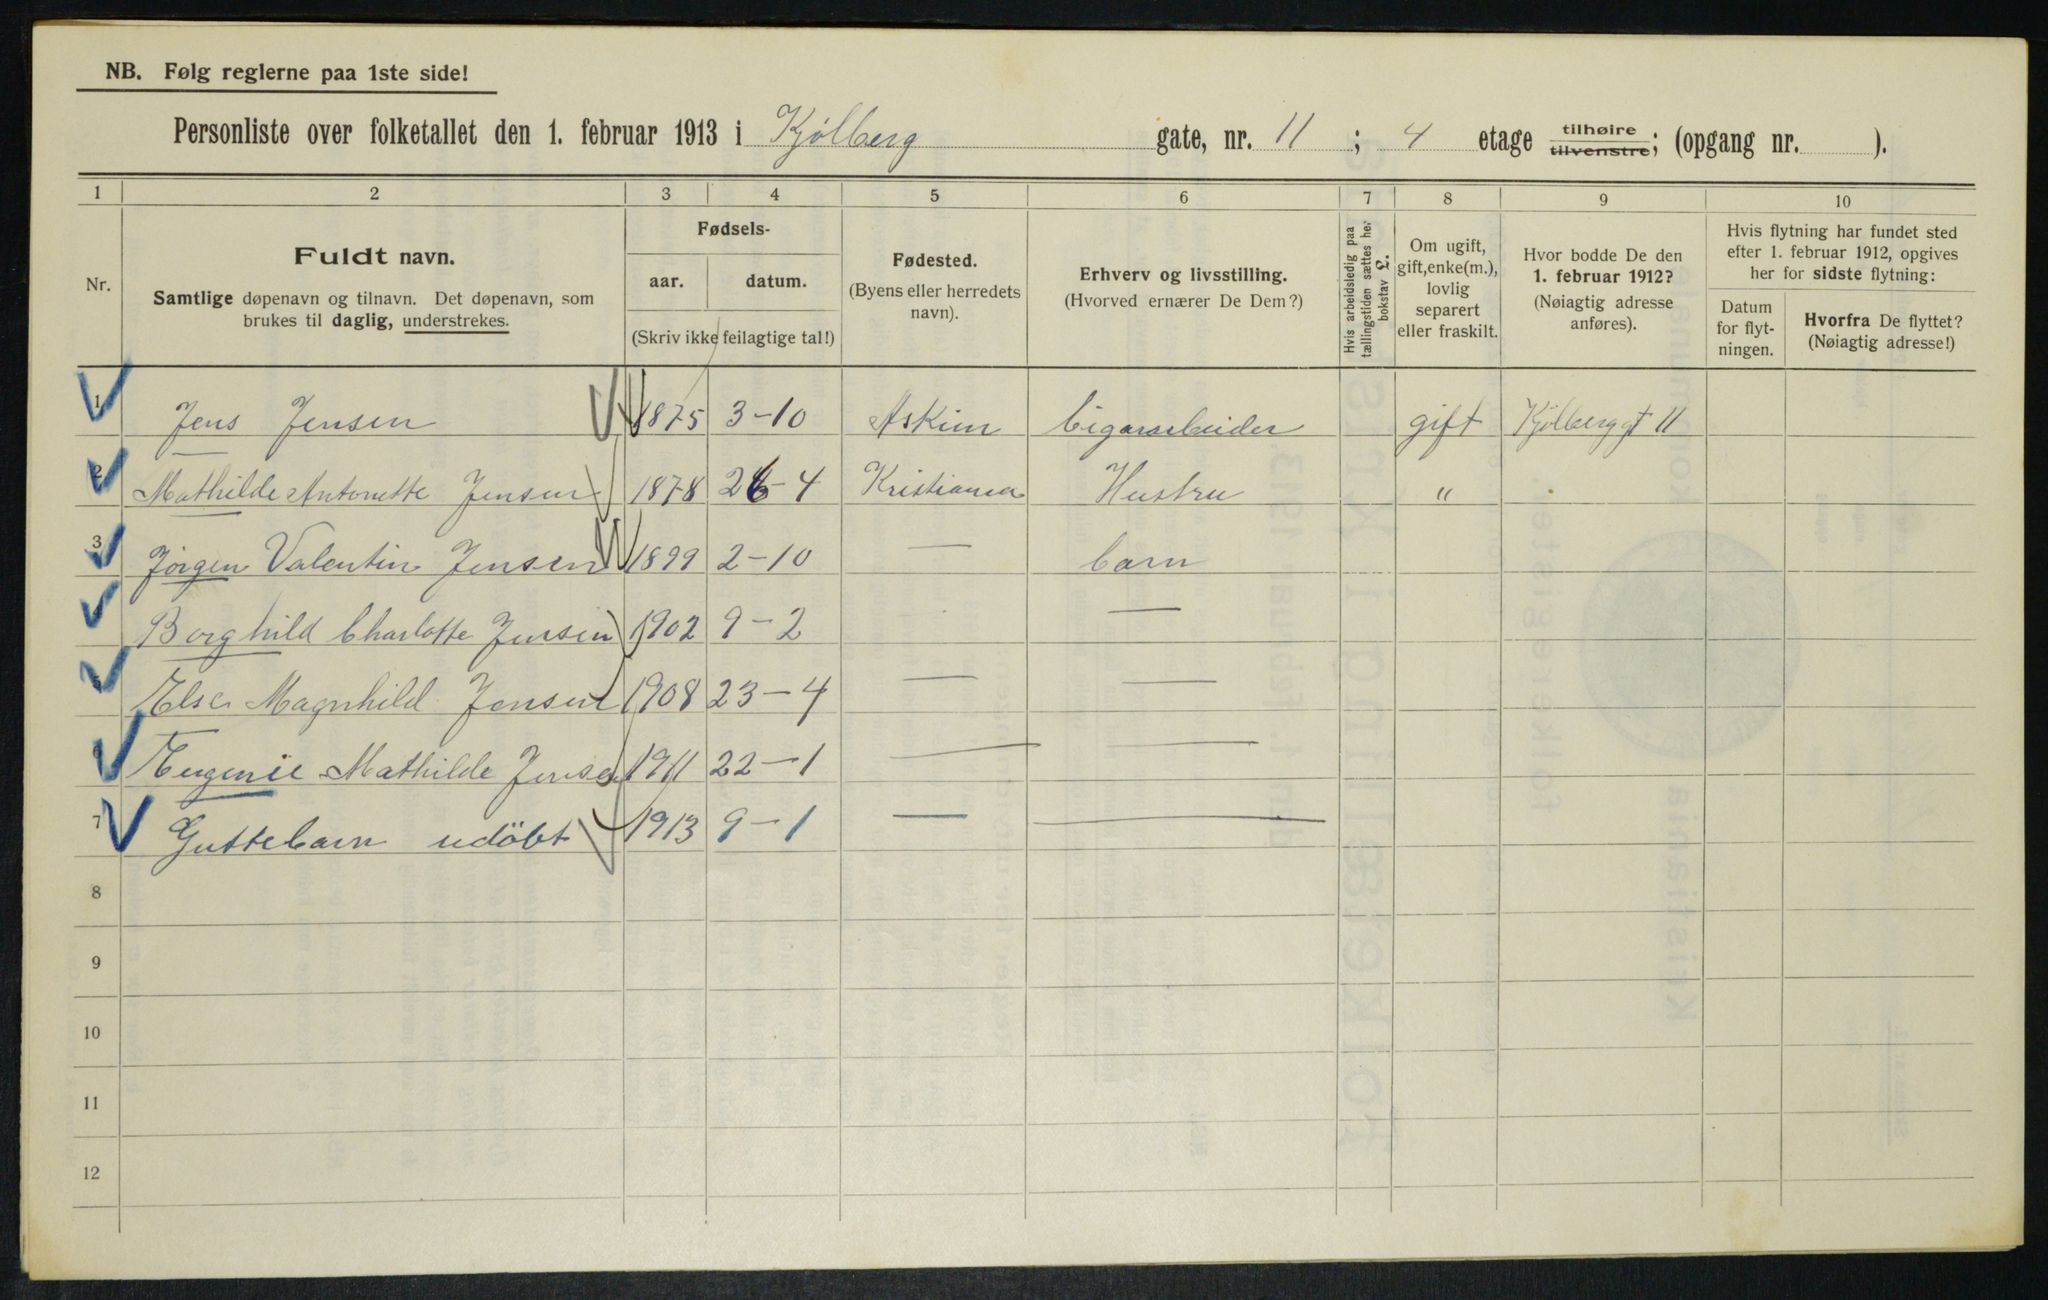 NB. Følg reglerne paa 1ste side!
Personliste over folketallet den 1. februar 1913 i Kjølberg gate, nr. 11 ; 4 etage tilhøire tilvenstre; (opgang nr. ).
1 2 3 4 5 6 7 8 9 10
Nr.
Fuldt navn.
Samtlige døpenavn og tilnavn. Det døpenavn, som
brukes til daglig, understrekes.
Fødsels-
aar. datum.
(Skriv ikke feilagtige tal!)
Fødested.
(Byens eller herredets
navn).
Erhverv og livsstilling.
(Hvorved ernærer De Dem?)
Hvis arbeidsledig paa
tællingstiden sættes her
bokstav L.
Om ugift,
gift, enke(m.),
lovlig
separert
eller fraskilt.
Hvor bodde De den
1. februar 1912?
(Nøiagtig adresse
anføres).
Hvis flytning har fundet sted
efter 1. februar 1912, opgives
her for sidste flytning:
Datum
for flyt-
ningen.
Hvorfra De flyttet?
(Nøiagtig adresse!)
1 Jens Jensen 1875 3-10 Askim Cigararbeider gift Kjølberggt 11
2 Mathilde Antonette Jensen 1878 26-4 Kristiania Hustru "
3 Jørgen Valentin Jensen 1899 2-10 — barn
4 Borghild Charlotte Jensen 1902 9-2 — —
5 Else Magnhild Jensen 1908 23-4 — —
6 Eugenie Mathilde Jensen 1911 22-1 — —
7 Guttebarn udöbt 1913 9-1 — —
8
9
10
11
12